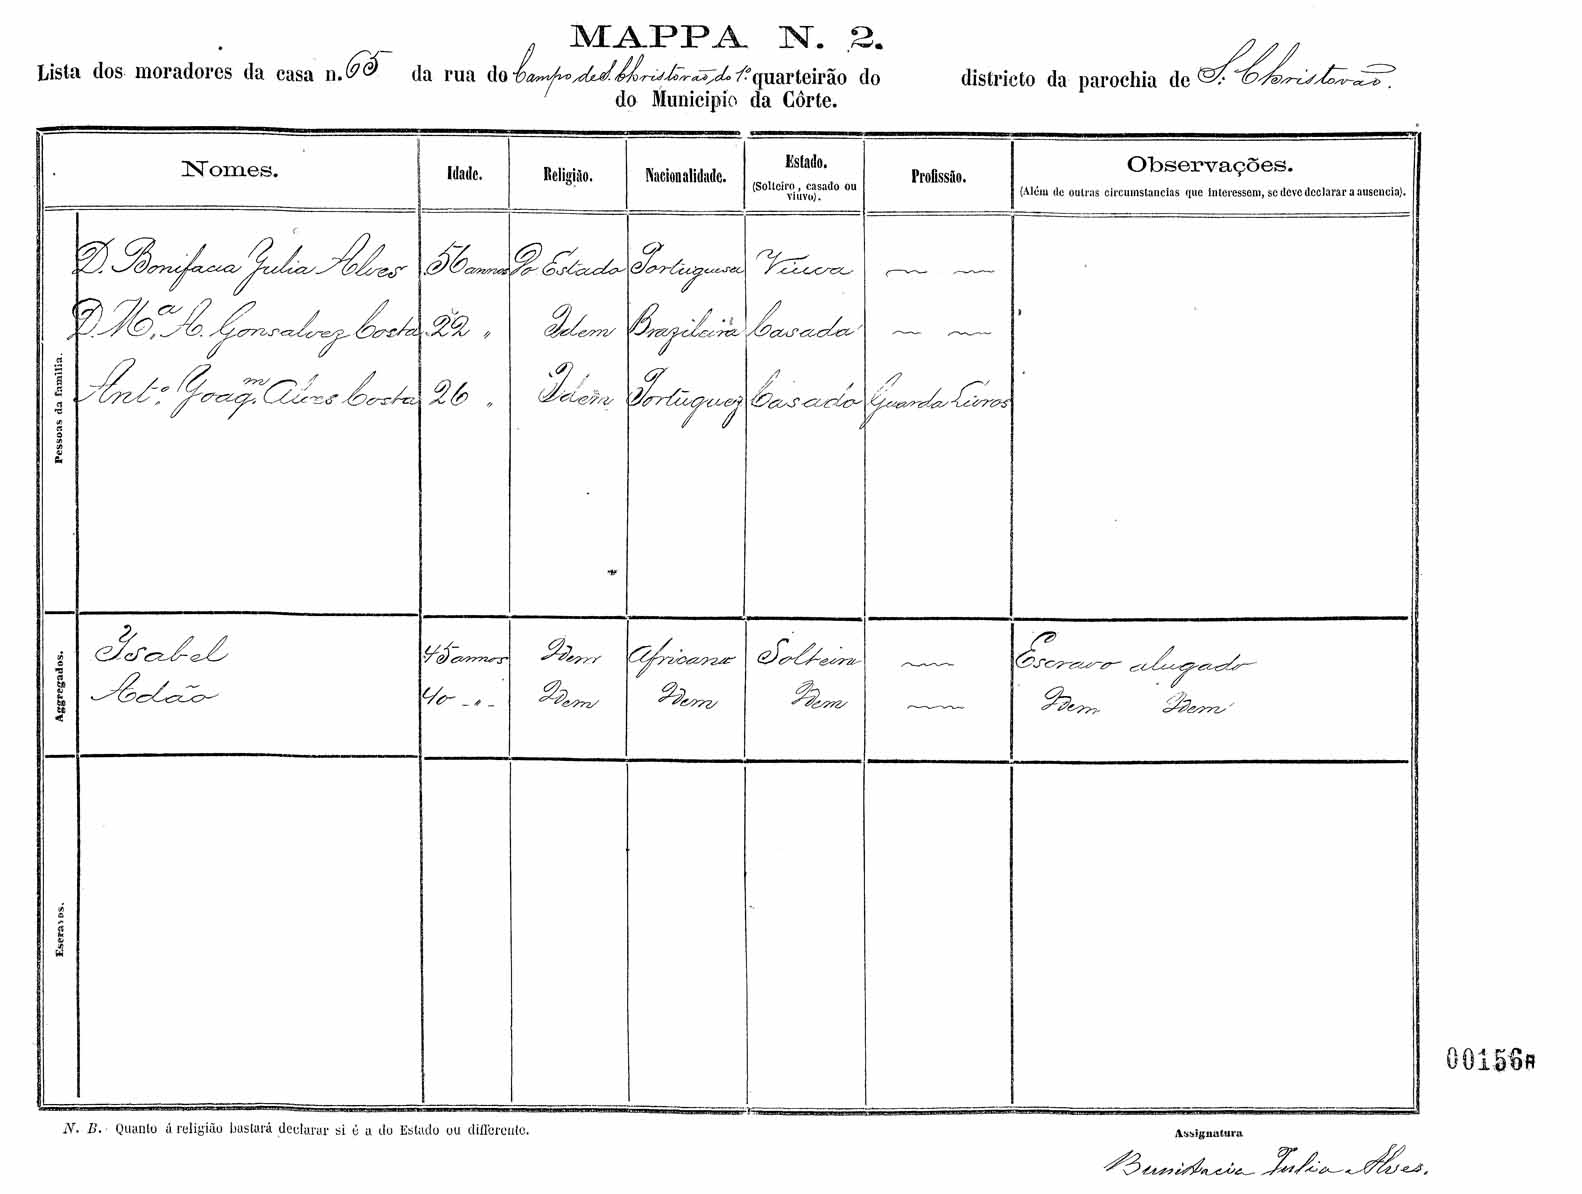 MAPPA N. 2.
Lista dos moradores da casa n. 65 da rua do Campo de S. Christovão do 1º quarteirão do districto da parochia de S. Christovão.
do Municipio da Côrte.
Nomes. Idade. Religião. Nacionalidade. Estado. Profissão. Observações.
(Solteiro, casado ou viuvo). (Além de outras circumstancias que interessem, se deve declarar a ausencia).
Pessoas da familia.
D. Bonifacia Julia Alves 56 annos Do Estado Portuguesa Viuva
D. Mª. A. Gonsalvez Costa 22 " Idem Brazileira Casada
Antº. Joaqm. Alves Costa 26 " Idem Portuguez Casado Guarda Livros
Aggregados.
Isabel 45 annos Idem Africana Solteira Escravo alugado
Adão 40 - " - Idem Idem Idem Idem Idem
Escravos.
00156A
N. B. Quanto á religião bastará declarar si é a do Estado ou differente.
Assignatura
Bunifacia Julia Alves.